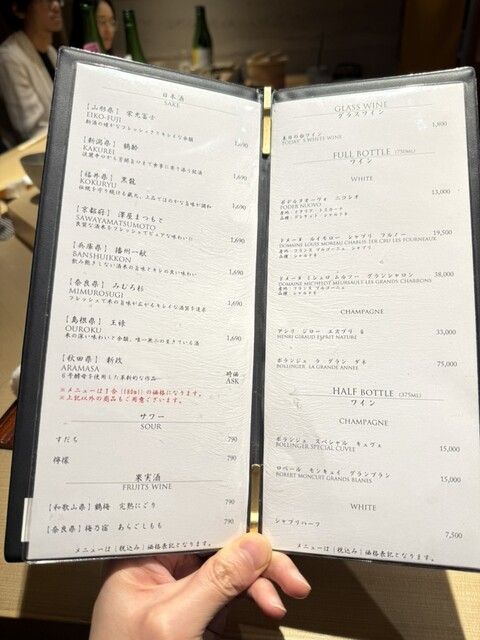 日本酒
SAKE
【山形県】 栄光冨士
EIKO-FUJI
1,690
【新潟県】 鶴齢
KAKUREI
1,690
【福井県】 黒龍
KOKURYU
1,690
【京都府】 澤屋まつもと
SAWAYAMATSUMOTO
1,690
【兵庫県】 播州一献
BANSHUIKKON
1,690
【奈良県】 みむろ杉
MIMUROSUGI
1,690
【島根県】 王祿
OUROKU
1,690
【秋田県】 新政
ARAMASA
6号酵母を使用した革新的な作品
時価
ASK
※メニューは1合(180ml)の価格になります。
※上記以外の商品もご用意ございます。
サワー
SOUR
すだち 790
檸檬 790
果実酒
FRUITS WINE
【和歌山県】鶴梅 完熟にごり 790
【奈良県】梅乃宿 あらごしもも 790
メニューは(税込み)価格表記となります。
GLASS WINE
グラスワイン
本日の白ワイン
TODAY'S WHITE WINE
1,800
FULL BOTTLE (750ML)
ワイン
WHITE
PODER NUOVO
13,000
DOMAINE LOUIS MOREAU CHABLIS 1ER CRU LES FOURNEAUX
19,500
DOMAINE MICHELOT MEURSAULT LES GRANDS CHARRONS
38,000
CHAMPAGNE
アンリ ジロー エスプリ ナチュール
HENRI GIRAUD ESPRIT NATURE
33,000
ボランジェ ラ グラン ダネ
BOLLINGER LA GRANDE ANNEE
75,000
HALF BOTTLE (375ML)
ワイン
CHAMPAGNE
ボランジェ スペシャル キュヴェ
BOLLINGER SPECIAL CUVEE
15,000
ロベール モンキュイ グランブラン
ROBERT MONCUIT GRANDS BLANC
15,000
WHITE
シャブリハーフ
7,500
メニューは(税込み)価格表記となります。